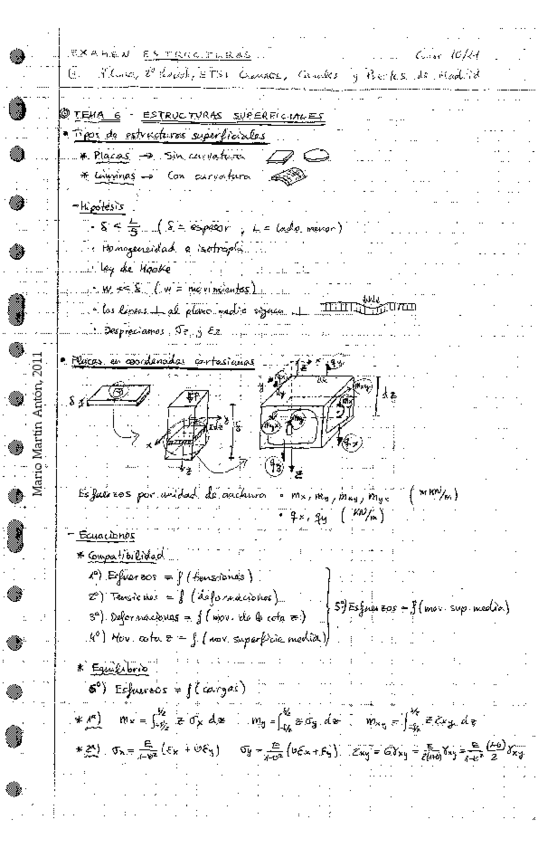 EXAMEN ESTRUCTURAS Curso 10/11
ETSI Caminos, Canales y Puertos de Madrid
TEMA 6 - ESTRUCTURAS SUPERFICIALES
• Tipos de estructuras superficiales
* Placas → Sin curvatura
* Láminas → Con curvatura
- Hipótesis
· δ < L/5 (δ = espesor, L = lado menor)
· Homogeneidad e isotropía
· Ley de Hooke
· w << δ (w = movimientos)
· Las líneas ⊥ al plano medio siguen ⊥
· Despreciamos σz y εz
• Placas en coordenadas cartesianas
Esfuerzos por unidad de anchura • mx, my, mxy, myx (m kN/m)
• qx, qy (kN/m)
- Ecuaciones
* Compatibilidad
1º) Esfuerzos = f (tensiones)
2º) Tensiones = f (deformaciones)
3º) Deformaciones = f (mov. de la cota z)
4º) Mov. cota z = f (mov. superficie media)
5º) Esfuerzos = f (mov. sup. media)
* Equilibrio
6º) Esfuerzos = f (cargas)
* 1º) mx = ∫ z σx dz my = ∫ z σy dz mxy = ∫ z τxy dz
* 2º) σx = E/1-υ² (εx + υεy) σy = E/1-υ² (υεx + εy) τxy = Gγxy = E/2(1+υ) γxy = E/1-υ² (1-υ)/2 γxy
Mario Martín Antón, 2011